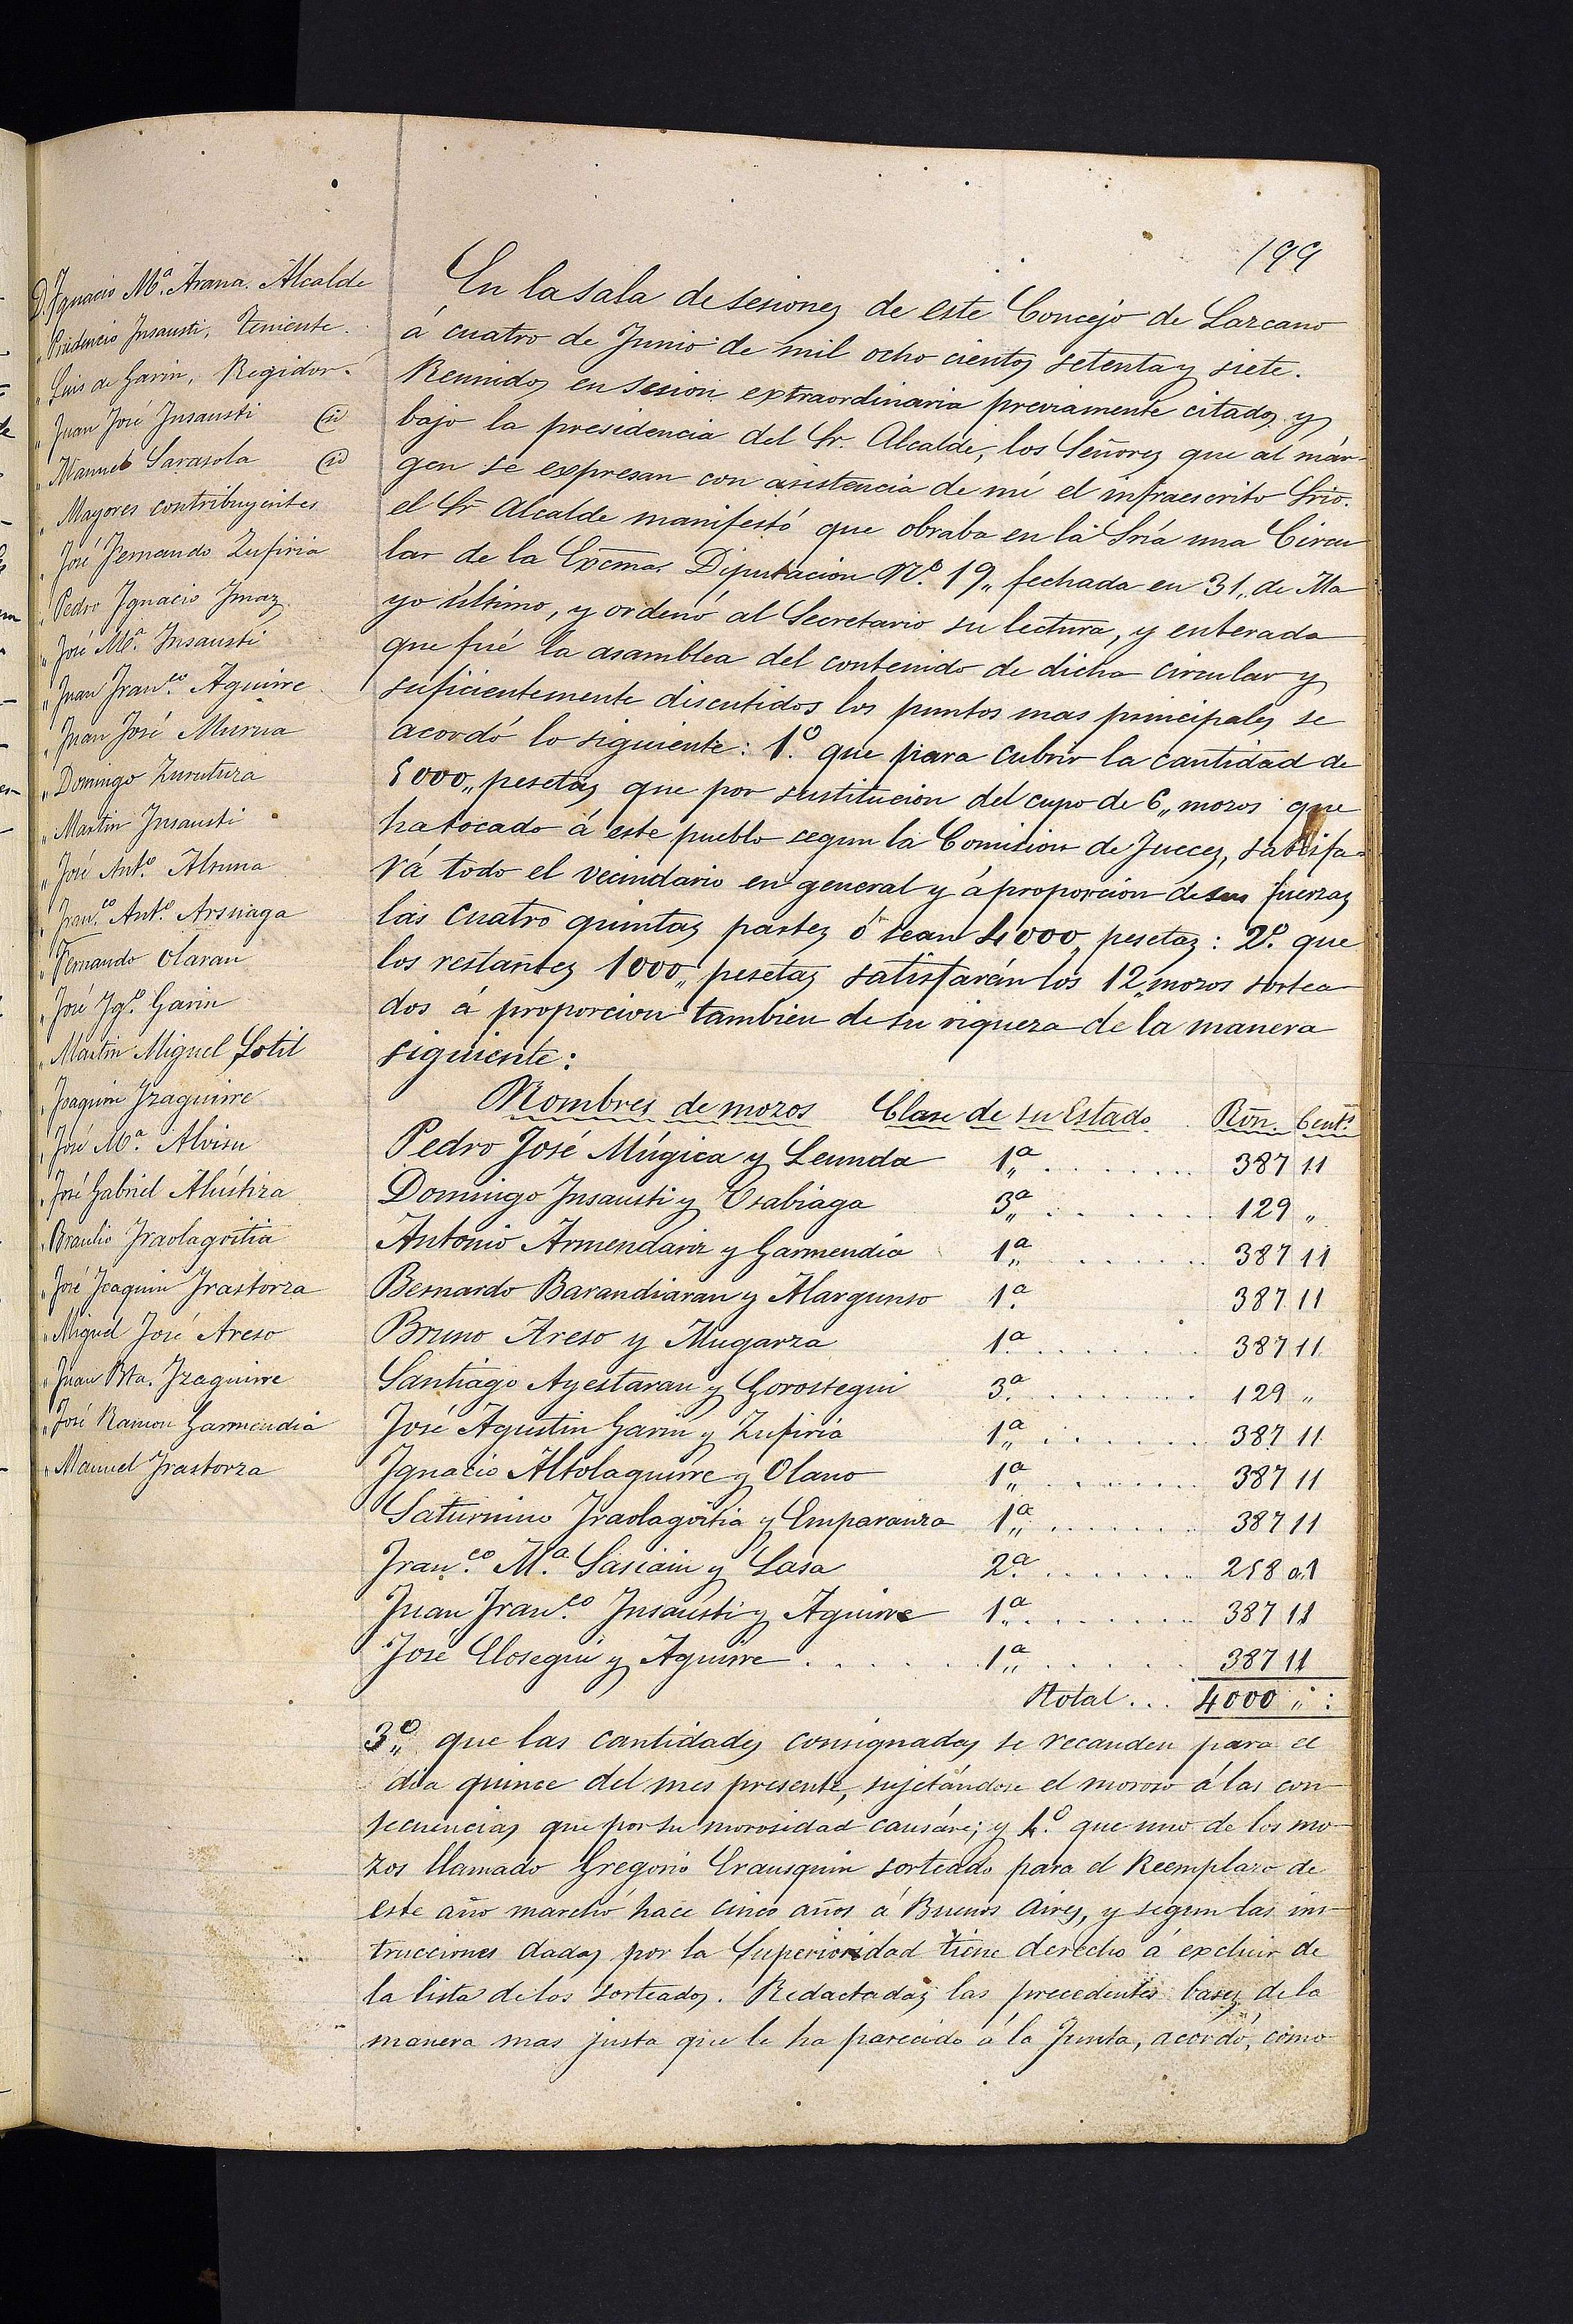 199
D. Ignacio M.ª Arana. Alcalde
" Prudencio Insausti, Teniente.
" Luis de Garin, Regidor.
" Juan José Insausti id
" Manuel Sarasola id
" Mayores contribuyentes
" José Fernando Zufiria
" Pedro Ignacio Imaz
" José M.ª Insausti
" Juan Fran.co Aguirre
" Juan José Murua
" Domingo Zurutuza
" Martin Insausti
" José Ant.º Altuna
" Fran.co Ant.º Arsuaga
" Fernando Olaran
" José Ig.º Garin
" Martin Miguel Sotil
" Joaquin Izaguirre
" José M.ª Alvisu
" José Gabriel Alústiza
" Braulio Iraolagoitia
" José Joaquin Irastorza
" Miguel José Areso
" Juan Bta. Izaguirre
" José Ramon Garmendia
" Manuel Irastorza
En la sala de sesiones de este Concejo de Lazcano
á cuatro de Junio de mil ocho cientos setenta y siete.
Reunidos en sesion extraordinaria previamente citados y
bajo la presidencia del Sr. Alcalde, los Señores que al már-
gen se expresan con asistencia de mí el infraescrito Srio.
el Sr Alcalde manifestó que obraba en la Sría una Circu
lar de la Excma. Diputacion N.º 19,, fechada en 31,, de Ma
yo último, y ordenó al Secretario su lectura, y enterada
que fué la asamblea del contenido de dicha circular y
suficientemente discutidos los puntos mas principales se
acordó lo siguiente: 1.º que para cubrir la cantidad de
5000,, pesetas que por sustitucion del cupo de 6,, mozos que
ha tocado á este pueblo segun la Comision de Jueces, satisfa-
rá todo el vecindario en general y á proporcion de sus fuerzas
las cuatro quintas partes ó sean 4000,, pesetas: 2.º que
los restantes 1000,, pesetas satisfarán los 12,, mozos sortea
dos á proporcion tambien de su riqueza de la manera
siguiente:
Nombres de mozos Clase de su Estado Rvn. Cent.s
Pedro José Múgica y Leunda 1.ª ........ 387 11
Domingo Insausti y Usabiaga 3.ª ........ 129 "
Antonio Armendariz y Garmendia 1.ª ........ 387 11
Bernardo Barandiaran y Albargunso 1.ª 387 11
Bruno Areso y Mugarza 1.ª ........ 387 11
Santiago Ayestaran y Gorostegui 3.ª ........ 129 "
José Agustin Garin y Zufiria 1.ª ........ 387 11
Ignacio Altolaguirre y Olano 1.ª ........ 387 11
Saturnino Iraolagoitia y Emparanza 1.ª ........ 387 11
Fran.co M.ª Sasiain y Lasa 2.ª ........ 258 01
Juan Fran.co Insausti y Aguirre 1.ª ........ 387 11
José Elosegui y Aguirre ...... 1.ª ........ 387 11
Total... 4000 " :
3.º que las cantidades consignadas se recauden para el
dia quince del mes presente, sujetándose el moroso á las con-
secuencias que por su morosidad causáre; y 4.º que uno de los mo-
zos llamado Gregorio Erausquin sorteado para el Reemplazo de
este año marchó hace cinco años á Buenos Aires, y segun las ins-
trucciones dadas por la Superioridad tiene derecho á excluir de
la lista de los sorteados. Redactadas las precedentes bases de la
manera mas justa que le ha parecido á la Junta, acordó, como